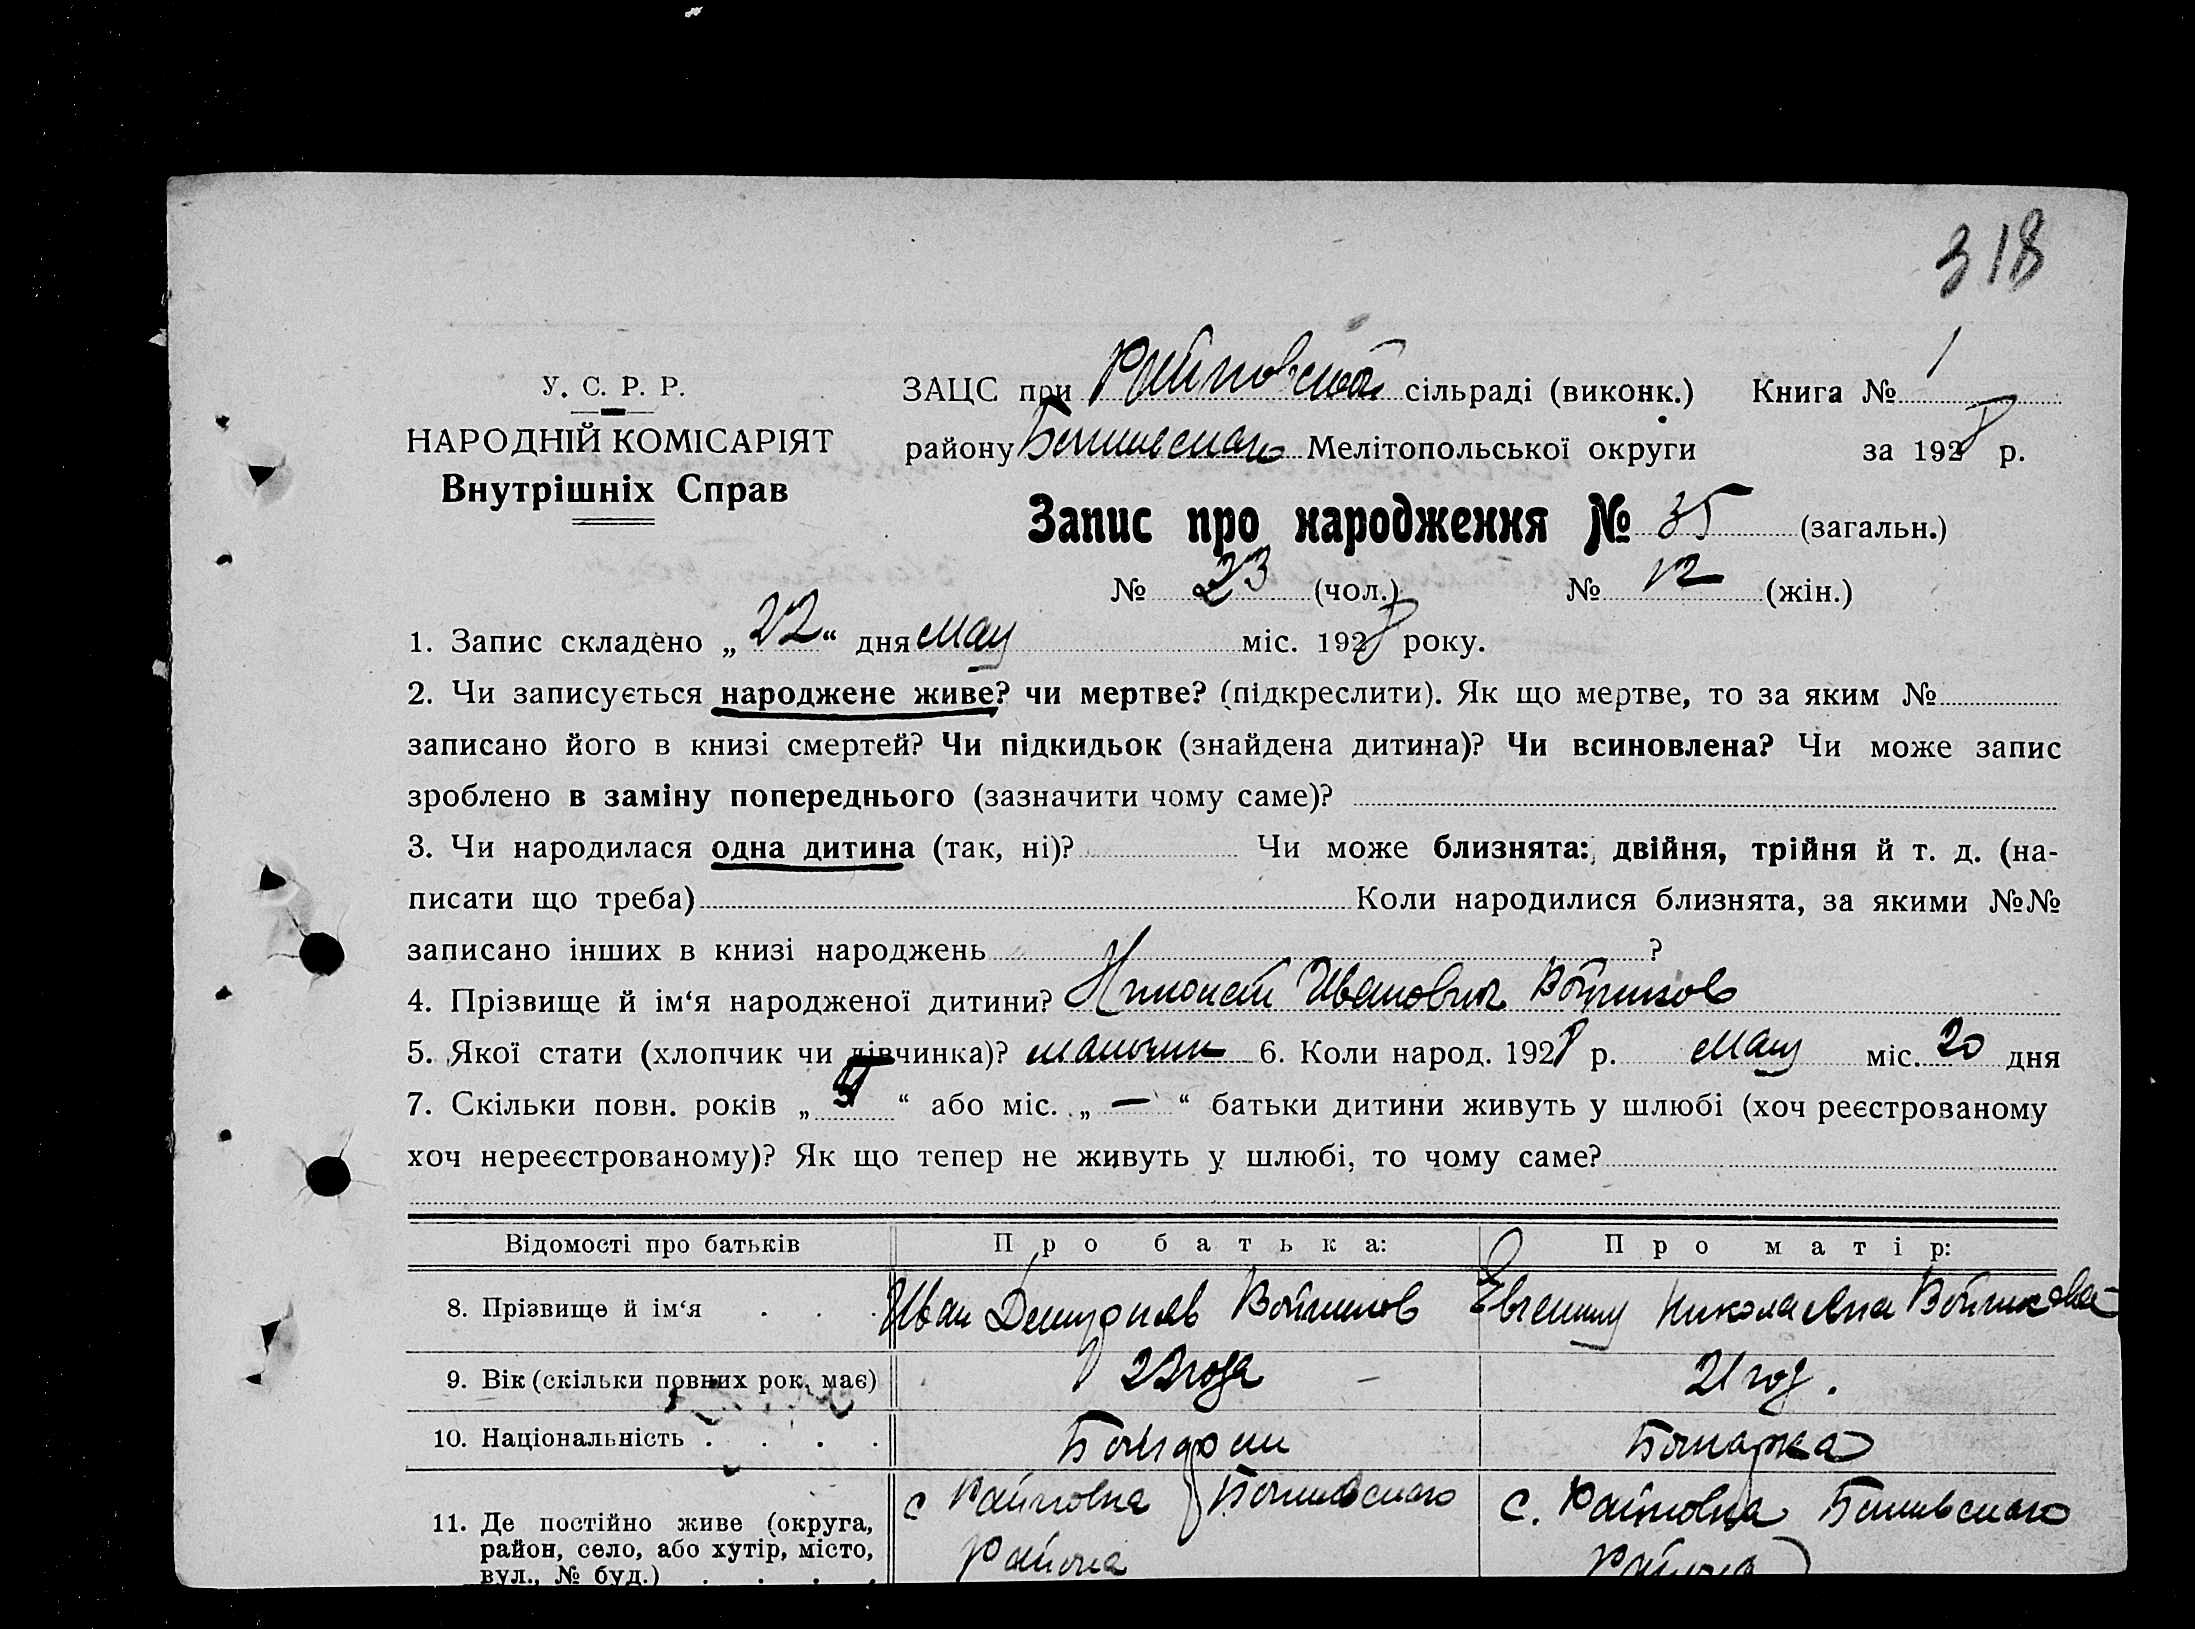 318
У. С. Р. Р.
НАРОДНІЙ КОМІСАРІЯТ
Внутрішніх Справ
ЗАЦС при Райновской сільраді (виконк.) Книга № 1
району Мелітопольської округи за 1928 р.
Запис про народження № 35 (загальн.)
№ 23 (чол.) № 12 (жін.)
1. Запис складено „ 22 “ дня Мая міс. 1928 року.
2. Чи записується народжене живе? чи мертве? (підкреслити). Як що мертве, то за яким №
записано його в книзі смертей? Чи підкидьок (знайдена дитина)? Чи всиновлена? Чи може запис
зроблено в заміну попереднього (зазначити чому саме)?
3. Чи народилася одна дитина (так, ні)? Чи може близнята: двійня, трійня й т. д. (на-
писати що треба) Коли народилися близнята, за якими №№
записано інших в книзі народжень ?
4. Прізвище й ім‘я народженої дитини? Николай Иванович Войников
5. Якої стати (хлопчик чи дівчинка)? мальчик 6. Коли народ. 1928 р. Мая міс. 20 дня
7. Скільки повн. років „ “ або міс. „ — “ батьки дитини живуть у шлюбі (хоч реєстрованому
хоч нереєстрованому)? Як що тепер не живуть у шлюбі, то чому саме?
Відомості про батьків Про батька: Про матір:
8. Прізвище й ім‘я . . . Иван Войников Евгения Николаевна Войникова
9. Вік (скільки повних рок. має) 22 года 21 год.
10. Національність . . . . Болгарин Болгарка
11. Де постійно живе (округа, с Райновка с. Райновка
район, село, або хутір, місто, Района Района
вул., № буд.) . . . .